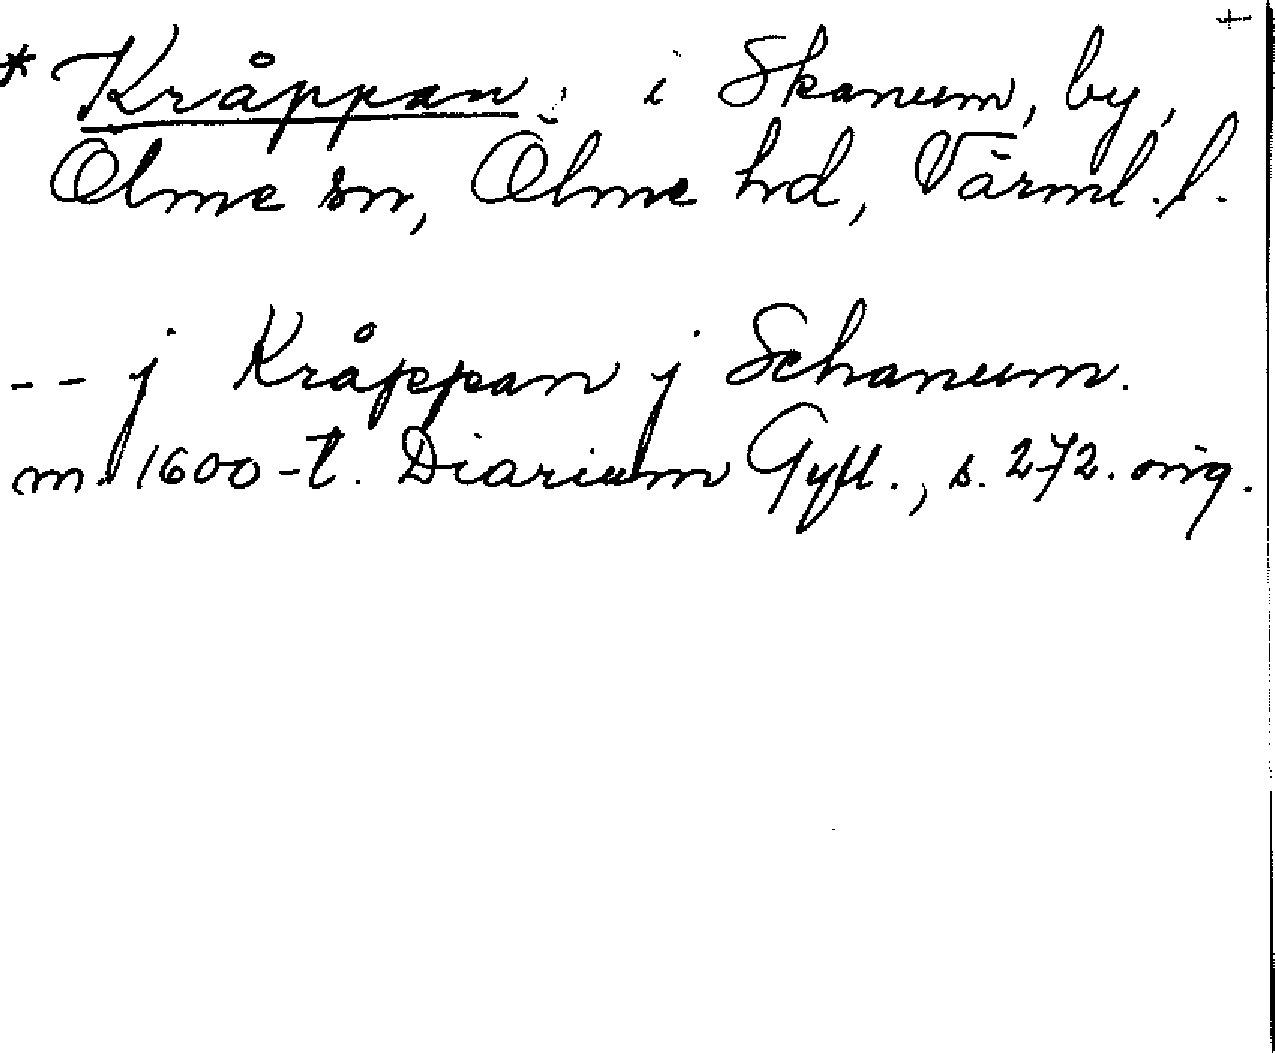 * Kråppan i Skanum, by,
Ölme sn, Ölme hd, Värml. l.
-- j Kråppan j Schanum.
m. 1600-t. Diarium Gyll., s. 272. orig.